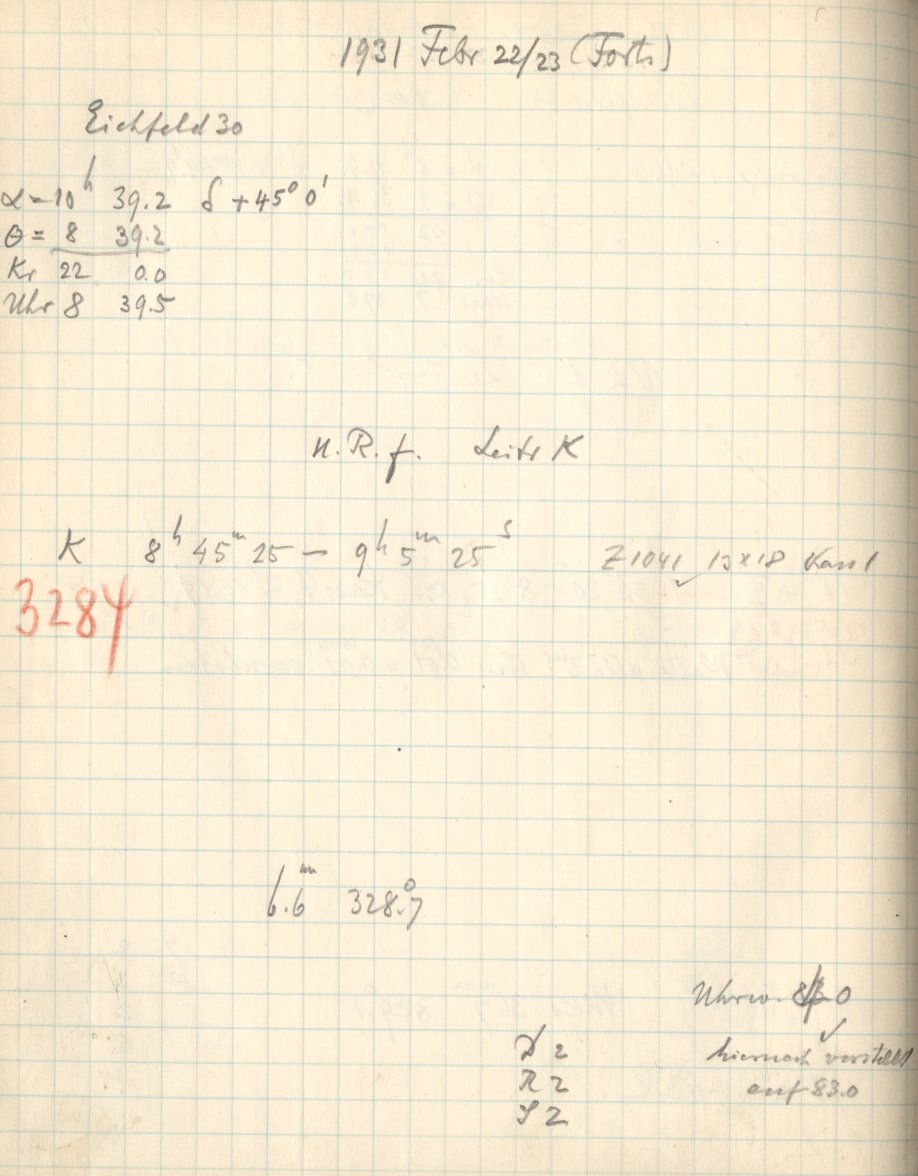 1931 Febr 22/23 (Forts)
Eichfeld 30
α = 10ʰ 39.2 δ + 45° 0'
Θ = 8 39.2
Kr 22 0.0
Uhr 8 39.5
n. R. f. Leitr K
K 8ʰ 45ᵐ 25 – 9ʰ 5ᵐ 25ˢ Z1041 13×18
3284
6.6ᵐᵐ 328.°7
Uhrw. 0
D 2 hiernach verstellt
R 2 auf 83.0
S 2